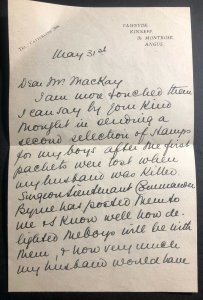 TEL. CATTERLINE 206.
FAWSYDE
KINNEFF
By MONTROSE
ANGUS.
May 31st
Dear Mr. MacKay
I am more touched than
I can say by your kind
thought in sending a
second selection of stamps
for my boys after the first
packets were lost when
my husband was killed
Surgeon Lieutenant Commander
Byrne has posted them to
me & I know well how de-
lighted the boys will be with
them, & how very much
my husband would have